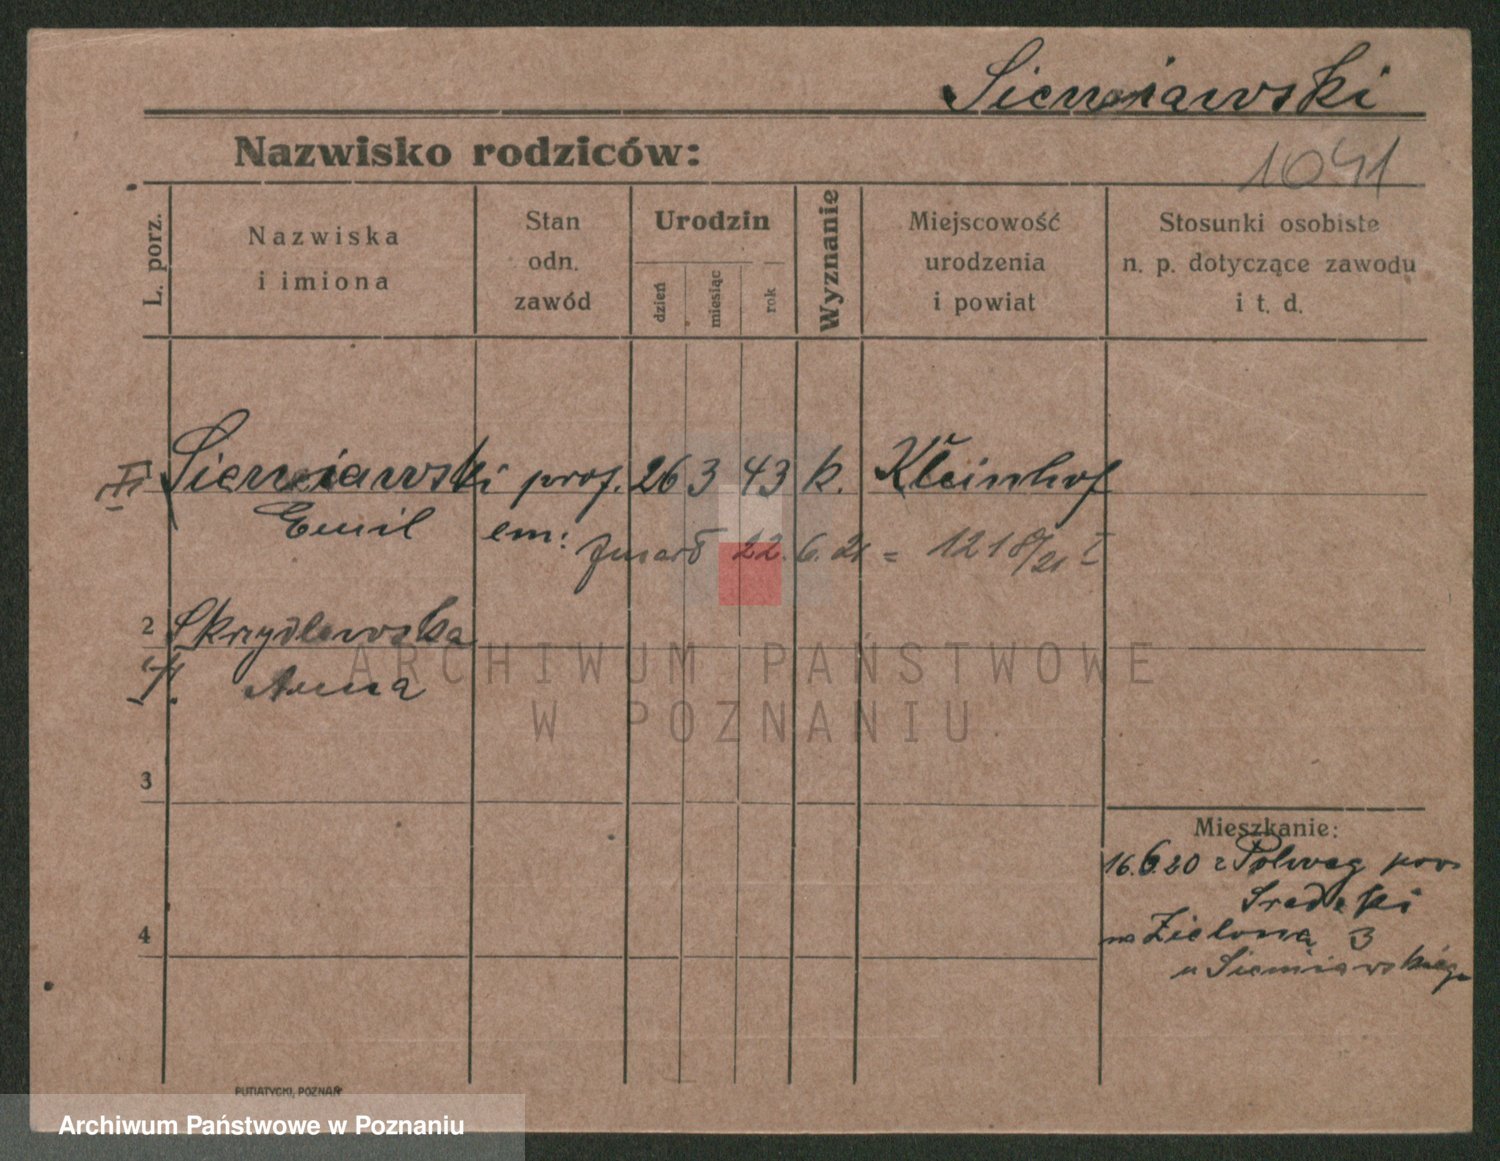 Sieniawski
Nazwisko rodziców:
1041
L. porz.
Nazwiska
i imiona
Stan
odn.
zawód
Urodzin
dzień
miesiąc
rok
Wyznanie
Miejscowość
urodzenia
i powiat
Stosunki osobiste
n. p. dotyczące zawodu
i t. d.
Sieniawski prof. 26 3 43 k. Kleinhof
Emil em:
zmarł 22.6.21 = 1218/21 I
2 Skrzydlewska
Anna
ARCHIWUM PAŃSTWOWE
W POZNANIU
3
4
Mieszkanie:
16.6.20 z Polwag pow
Sredzki
na Zielona 3
u Sieniawskiego
PUTIATYCKI, POZNAŃ
Archiwum Państwowe w Poznaniu